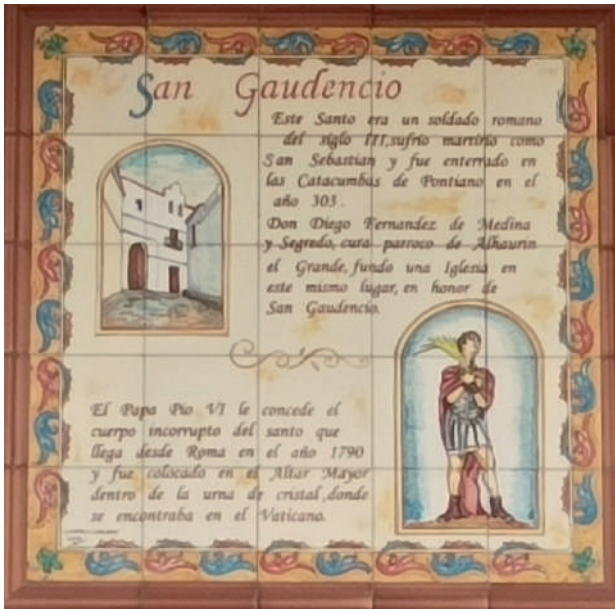 San Gaudencio
Este Santo era un soldado romano
del siglo III,sufrio martirio como
San Sebastian y fue enterrado en
las Catacumbas de Pontiano en el
año 303.
Don Diego Fernandez de Medina
y Segredo, cura parroco de Alhaurin
el Grande, fundo una Iglesia en
este mismo lugar, en honor de
San Gaudencio.
El Papa Pio VI le concede el
cuerpo incorrupto del santo que
llega desde Roma en el año 1790
y fue colocado en el Altar Mayor
dentro de la urna de cristal,donde
se encontraba en el Vaticano.